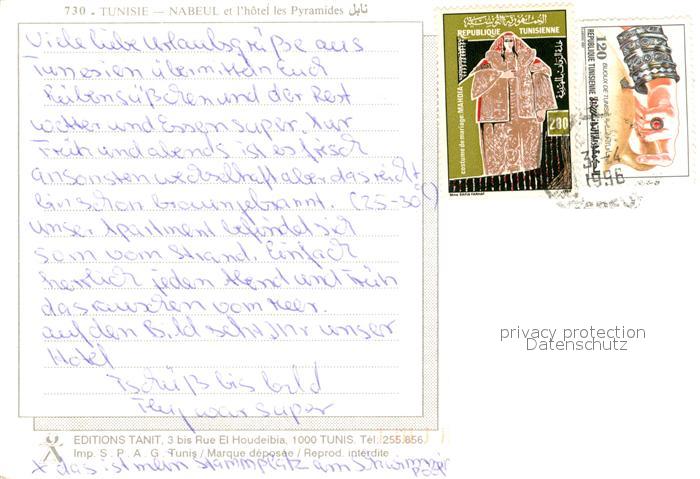 730 - TUNISIE — NABEUL et l'hôtel les Pyramides نابل
Viele liebe Urlaubsgrüße aus
Tunesien
und der Rest
Wetter und Essen super. Nur
Früh und Abends ist es frisch
ansonsten aber das reicht
bin schon braungebrannt. (25-30°C)
Unser Apartment befindet sich
50m vom Strand. Einfach
herrlich jeden Abend und Früh
das Rauschen vom Meer.
auf den Bild seht Ihr unser
Hotel
Tschüß bis bald
war super
EDITIONS TANIT, 3 bis Rue El Houdeibia, 1000 TUNIS. Tél. 255.656
Imp. S.P.A.G. Tunis / Marque déposée / Reprod. interdite
x das ist mein Stammplatz am Schwimming
Pool
REPUBLIQUE TUNISIENNE
costume de mariage MAHDIA
280
120 BIJOUX DE TUNISIE
REPUBLIQUE TUNISIENNE
1996
privacy protection
Datenschutz